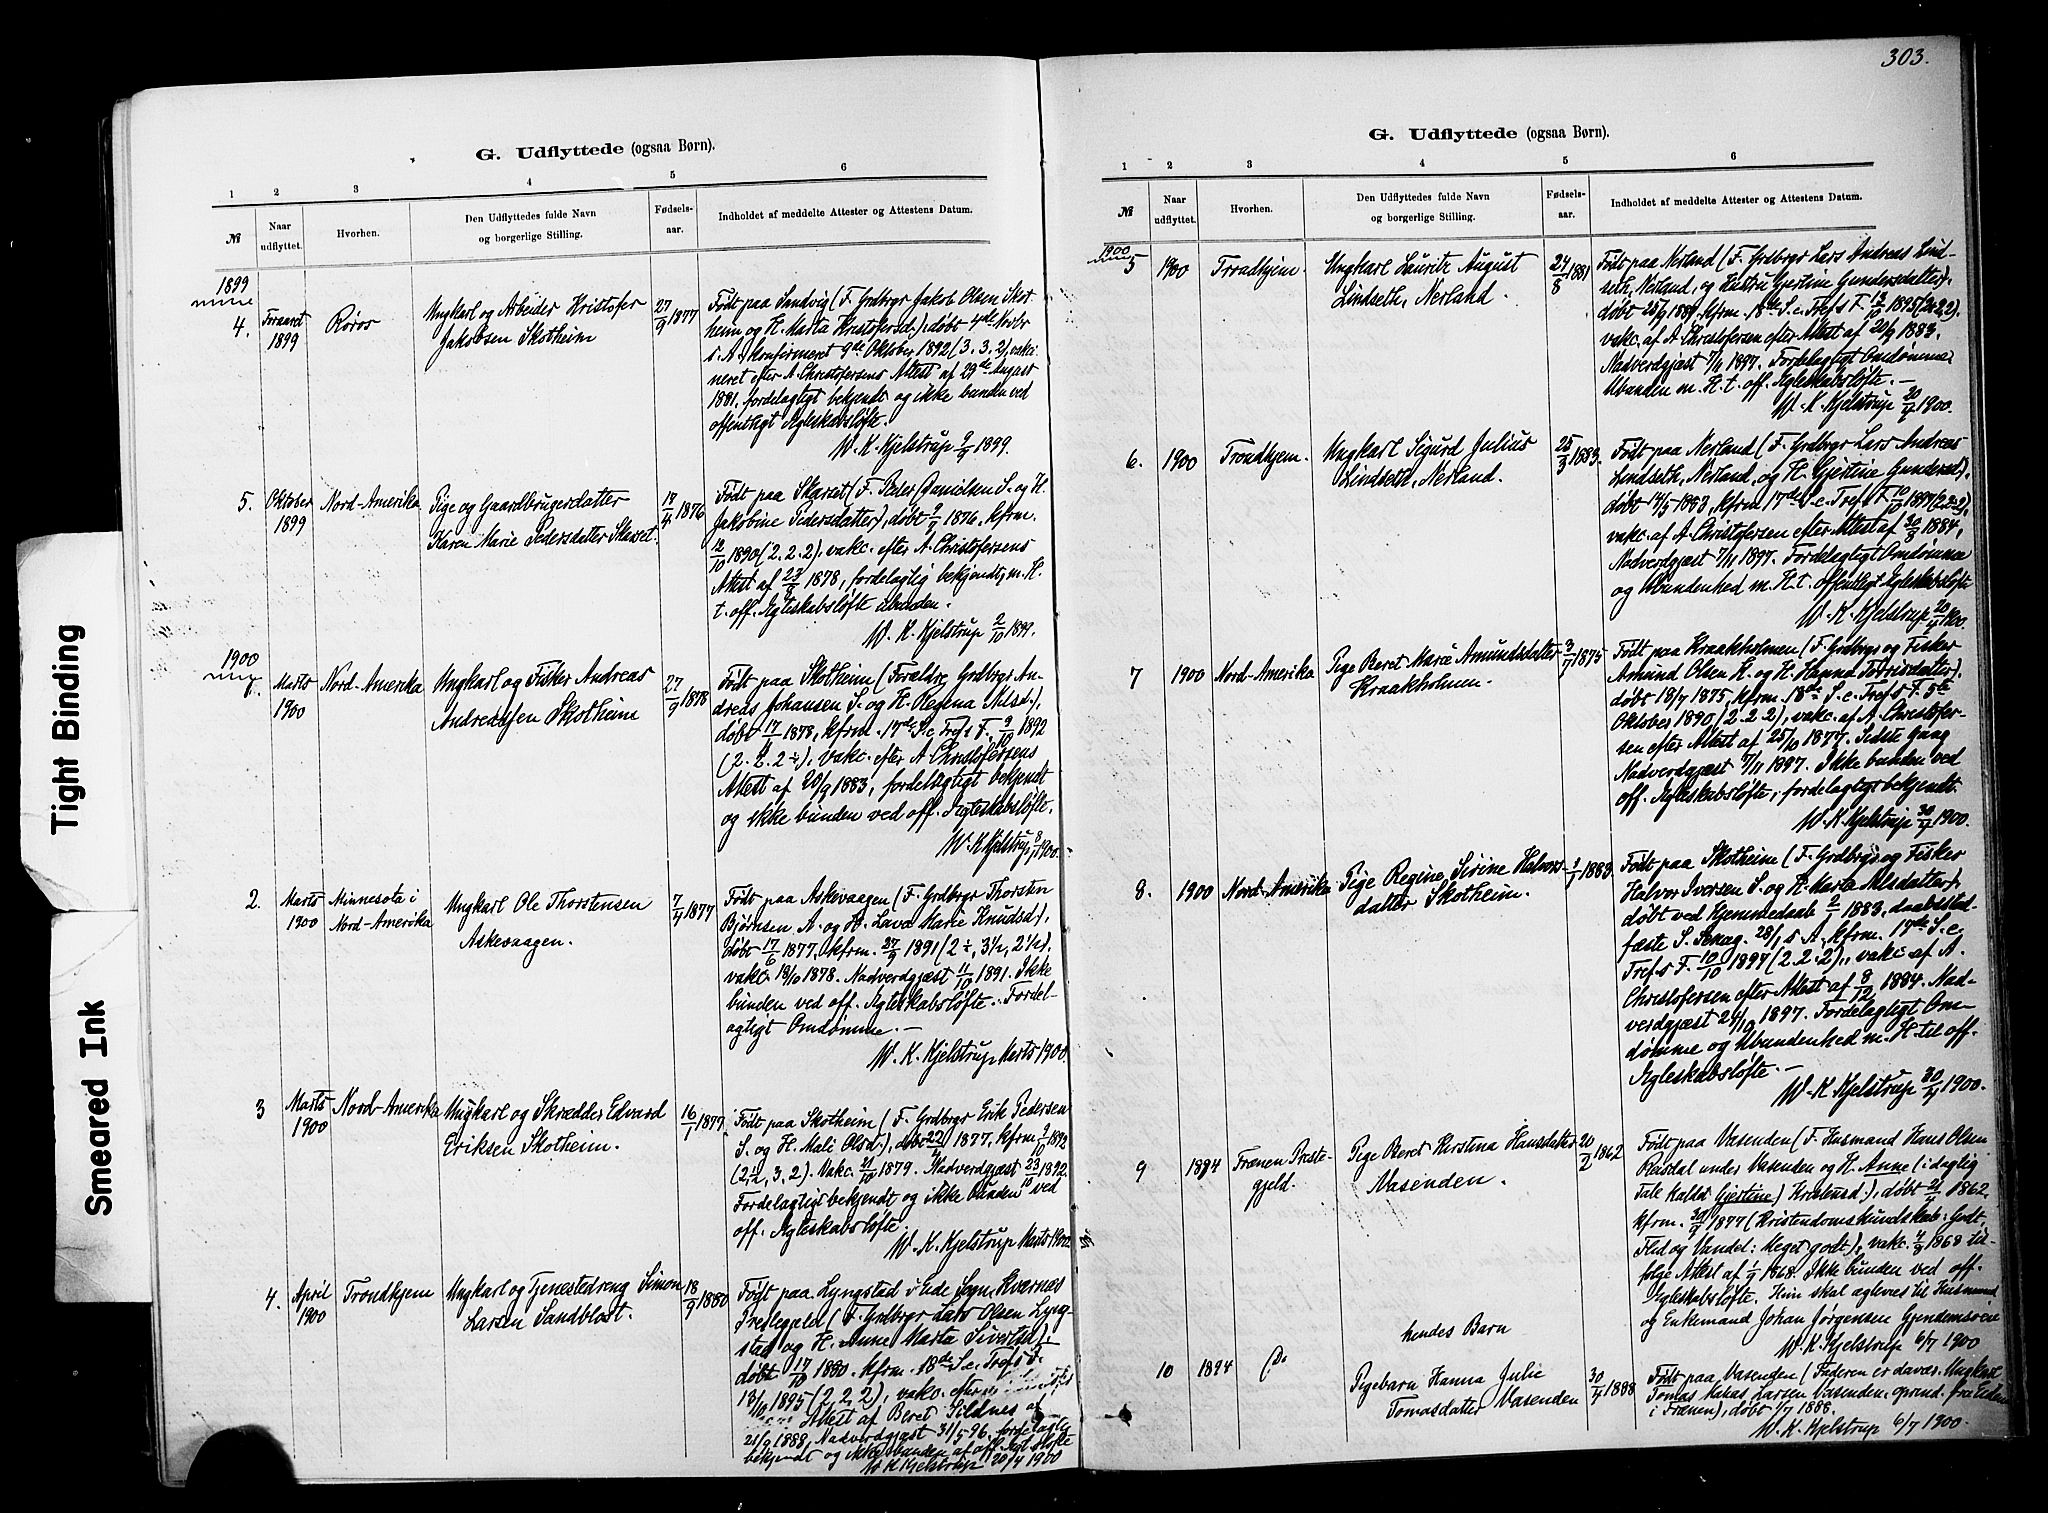 303.
G. Udflyttede (ogsaa Børn).
1 2 3 4 5 6
№ Naar udflyttet. Hvorhen. Den Udflyttedes fulde Navn og borgerlige Stilling. Fødsels-aar. Indholdet af meddelte Attester og Attestens Datum.
1899
4. Foraaret 1899 Røros
Ungkarl og Arbeider Kristofer
Jakobsen Skotheim
27/9 1877
Født paa Sandvig (F. Grdbrgr Jakob Olsen Skot-
heim og H. Marta Kristofersd.), døbt 4de Novbr
s. A., konfirmeret 9de Oktober 1892 (3. 3. 2), vakci-
neret efter A. Christofersens Attest af 29de August
1881, fordelagtigt bekjendt og ikke bunden ved
offentligt Ægteskabsløfte.
W. K. Kjelstrup 9/9 1899.
5. Oktober 1899 Nord-Amerika
Pige og Gaardbrugerdatter
Karen Marie Pedersdatter Skarset.
17/4 1876
Født paa Skarset (F. Peder Danielsen S. og H.
Jakobine Pedersdatter), døbt 9/7 1876, kfrm.
12/10 1890 (2. 2. 2), vakc. efter A. Christofersens
Attest af 23/8 1878, fordelagtig bekjendt, m. H.
t. off. Ægteskabsløfte ubunden.
W. K. Kjelstrup 2/10 1899.
1900
1. Marts 1900 Nord-Amerika
Ungkarl og Fisker Andreas
Andreassen Skotheim
27/9 1878
Født paa Skotheim (Forældre, Grdbrgr An-
dreas Johansen S. og H. Regina Nilsd.),
døbt 17/11 1878, kfrm. 17de S. e. Tref. F. 9/10 1892
(2. 2. 2½), vakc. efter A. Christofersens
Attest af 20/9 1883, fordelagtigt bekjendt
og ikke bunden ved off. Ægteskabsløfte.
W. K. Kjelstrup 1900.
2. Marts 1900 Minnesota i
Nord-Amerika
Ungkarl Ole Thorstensen
Askevaagen.
7/4 1877
Født paa Askevaagen (F. Grdbrgr Thorsten
Bjørnsen A. og H. Lava Marie Knudsd.),
døbt 17/6 1877, kfrm. 27/9 1891 (2½, 3½, 2½),
vakc. 18/10 1878. Nadverdgjæst 11/10 1891. Ikke
bunden ved off. Ægteskabsløfte. Fordel-
agtigt Omdømme. —
W. K. Kjelstrup Marts 1900
3 Marts 1900 Nord-Amerika
Ungkarl og Skrædder Edvard
Eriksen Skotheim.
16/1 1877
Født paa Skotheim (F. Grdbrgr Erik Pedersen
S. og H. Mali Olsd.), døbt 22/4 1877, kfrm 9/10 1892
(2½, 3, 2). Vakc. 21/10 1879. Nadverdgjæst 23/10 1892.
Fordelagtigt bekjendt og ikke bunden ved
off. Ægteskabsløfte.
W. K. Kjelstrup Marts 1900
4. April 1900 Trondhjem
Ungkarl og Tjenestedreng Simon
Larsen Sandblost.
18/9 1880
Født paa Lyngstad i Eide Sogn, Kvernæs
Prestegjeld (F. Grdbrgr Lars Olsen Lyng-
stad og H. Anne Marta Sivertsd.),
døbt 17/10 1880. kfrm. 18de S. e. Tref. F.
13/10 1895 (2. 2. 2), vakc.
Attest af Beret Sildnes af
21/9 1888, Nadverdgjæst 31/5 96, fordelagtig
bekjendt og ikke bunden af off. Ægt.sløfte
W K Kjelstrup 20/4 1900
G. Udflyttede (ogsaa Børn).
1 2 3 4 5 6
№ Naar udflyttet. Hvorhen. Den Udflyttedes fulde Navn og borgerlige Stilling. Fødsels-aar. Indholdet af meddelte Attester og Attestens Datum.
1900
5 1900 Trondhjem
Ungkarl Lauritz August
Lindseth, Nerland.
24/8 1881
Født paa Nerland (F. Grdbrgr Lars Andreas Lind-
seth, Nerland, og Hustru Gjertine Gundersdatter),
døbt 25/9 1881, kfrm. 18de S. e. Tref. F. 13/10 1895 (2.2.2)
vakc. af A. Christofersen efter Attest af 20/9 1883.
Nadverdgjæst 7/11 1897. Fordelagtigt Omdømme
Ubunden m. H. t. off. Ægteskabsløfte. —
W. K. Kjelstrup 20/4 1900.
6. 1900 Trondhjem.
Ungkarl Sigurd Julius
Lindseth, Nerland.
25/3 1883.
Født paa Nerland (F. Grdbrgr Lars Andreas
Lindseth, Nerland, og H. Gjertine Gundersd.),
døbt 14/5 1883, kfrm 17de S. e. Tref. F. 10/10 1897 (2.2.2),
vakc. af A. Christofersen efter Attest af 20/8 1884,
Nadverdgjæst 7/11 1897. Fordelagtigt Omdømme
og Ubundenhed m. H. t. offentligt Ægteskabsløfte
W. K. Kjelstrup 20/4 1900.
7 1900 Nord-Amerika
Pige Beret Marie Amundsdatter
Kraakholmen.
9/7 1875
Født paa Kraakholmen (F. Grdbrgr og Fisker
Amund Olsen K. og H. Hanna Torrisdatter),
døbt 18/7 1875, kfrm. 18de S. e. Tref. F. 5te
Oktober 1890 (2. 2. 2), vakc. af A. Christofer-
sen efter Attest af 25/10 1877. Sidste Gang
Nadverdgjæst 7/11 1897. Ikke bunden ved
off. Ægteskabsløfte, fordelagtigt bekjendt.
W. K. Kjelstrup 30/4 1900.
8. 1900 Nord-Amerika
Pige Regine Sirine Halvors-
datter Skotheim.
1/1 1883
Født paa Skotheim (F. Grdbrgr og Fisker
Halvor Iversen S. og H. Marta Nilsdatter),
døbt ved Hjemmedaab 2/1 1883, daabsstad-
fæste S. Senag. 28/1 s A, kfrm. 17de S. e.
Tref. s F. 10/10 1897 (2. 2. 2), vakc. af A.
Christofersen efter Attest af 8/12 1884. Nad-
verdgjæst 24/10 1897. Fordelagtigt Om-
dømme og Ubundenhed m. H. til off.
Ægteskabsløfte. —
W. K. Kjelstrup 30/4 1900.
9 1894 Frænen Preste-
gjeld.
Pige Beret Kirstina Hansdatter
Vasenden.
20/2 1862
Født paa Vasenden (F. Husmand Hans Olsen
Reisdal under Vasenden og H. Anne (i daglig
Tale kaldt Gjertine) Kristensd.), døbt 21/4 1862,
kfrm. 30/9 1877 (Kristendomskundskab: Godt,
Flid og Vandel: Meget godt), vakc. 4/9 1868 til-
følge Attest af 1/9 1868. Ikke bunden ved off.
Ægteskabsløfte. Hun skal ægtevies til Husmand
og Enkemand Johan Jørgensen Gjendemsøien
W. K. Kjelstrup 6/7 1900
hendes Barn
10 1894 Do
Pigebarn Hanna Julie
Tomasdatter Vasenden
30/4 1888
Født paa Vasenden (Faderen er davær. Ungkarl
Tomas Larsen Vasenden, oprind. fra Eiden
i Frænen), døbt 1/7 1888.
W. K. Kjelstrup 6/7 1900.
Tight Binding
Smeared Ink